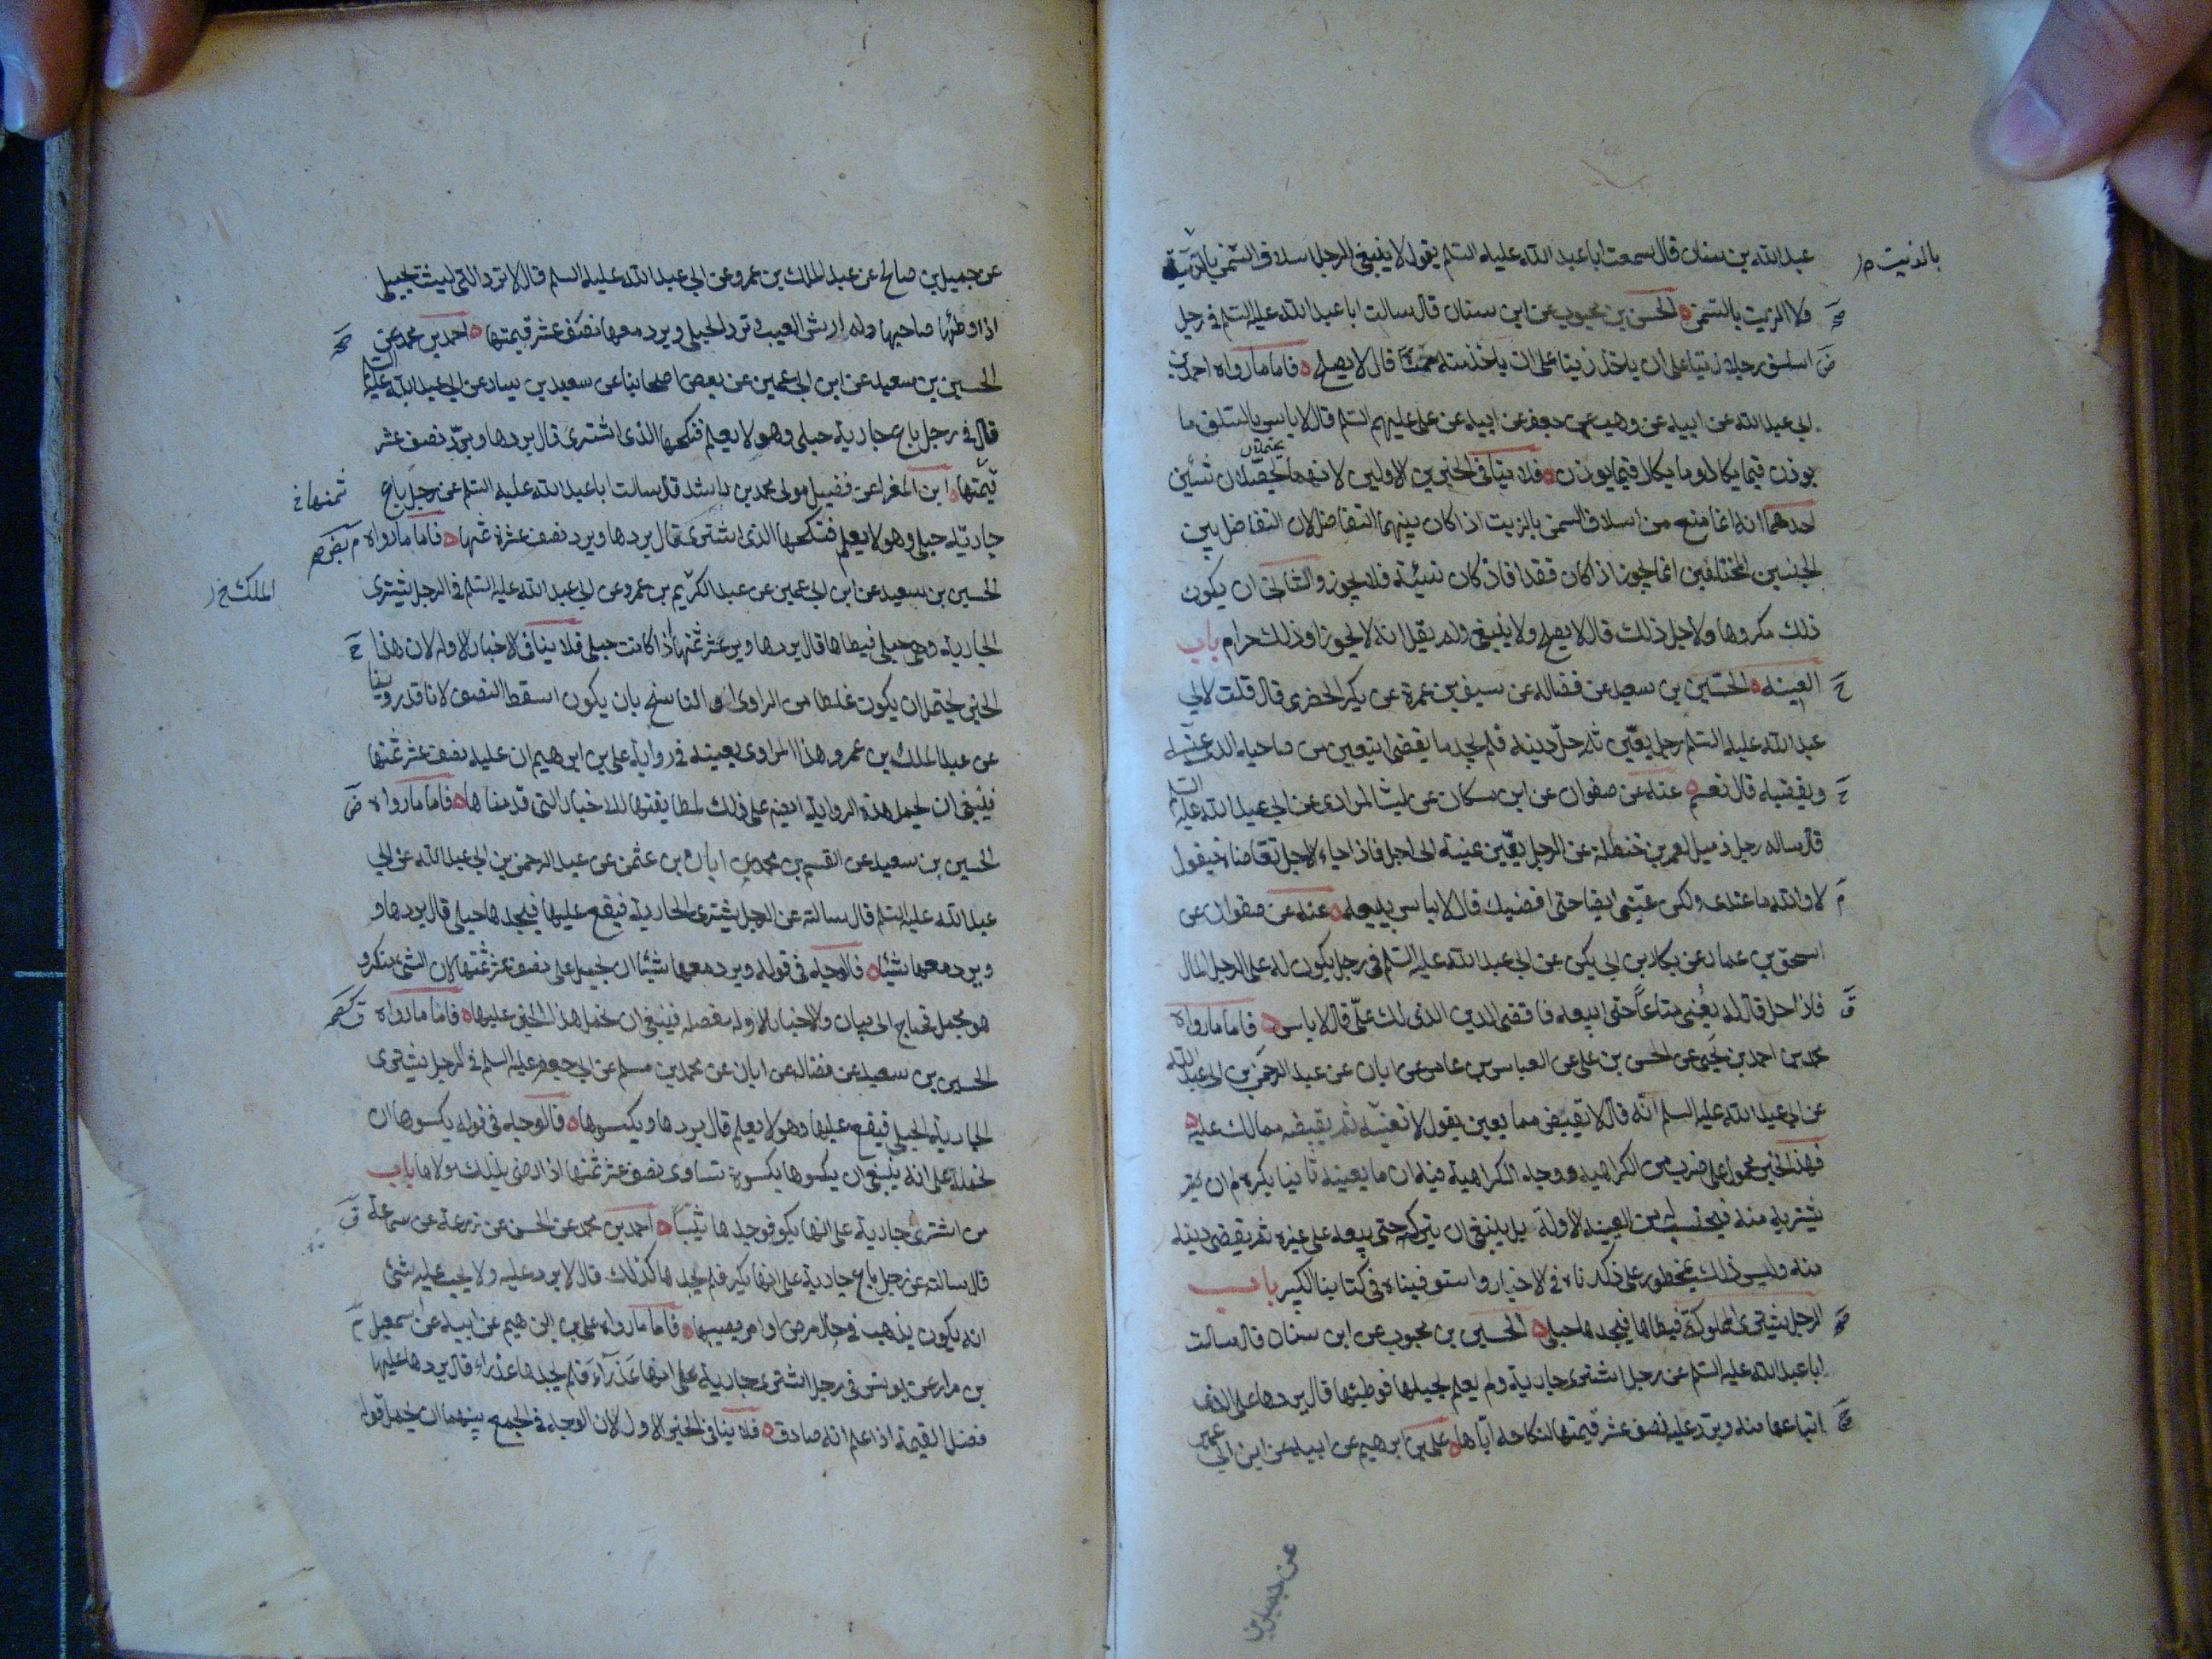 عبد الله بن سنان قال سمعت ابا عبد الله عليه السلم يقول لا ينبغي للرجل اسلاف السمن بالزيت
بالزيت
ولا الزيت بالسمن الحسن بن محبوب عن ابن سنان قال سالت ابا عبد الله عليه السلم في رجل
اسلف رجلا زيتا على ان ياخذ منه سمنا قال لا يصلح فاما ما رواه احمد بن
ابي عبد الله عن ابيه عن وهيب عن جعفر عن ابيه عن علي عليهم السلم قال لا باس بالسلف ما
يوزن فيما يكال وما يكال فيما يوزن فلا ينافي الخبرين الاولين لانهما يحتملان شيئين
احدهما انه انما منع من اسلاف السمن بالزيت اذا كان بينهما التفاضل لان التفاضل بين
الجنسين المختلفين انما يجوز اذا كان نقدا فاذ كان نسيئة فلا يجوز والثاني ان يكون
ذلك مكروها ولاجل ذلك قال لا يصلح ولا ينبغي ولم يقل انه لا يجوز او ذلك حرام باب
العينه الحسين بن سعيد عن فضاله عن سيف بن عميرة عن بكر الحضرمي قال قلت لابي
عبد الله عليه السلم رجل يعين ثم حل دينه فلم يجد ما يقضي ايتعين من صاحبه الذي عينه
ويقضيه قال نعم عنه عن صفوان عن ابن مسكان عن ليث المرادي عن ابي عبد الله عليه السلم
قال ساله رجل زميل لعمر بن حنظلة عن الرجل يعين عينة الى اجل فاذا جاء الاجل تقاضاه فيقول
لا والله ما عندي ولكن عيني ايضا حتى اقضيك قال لا باس ببيعه عنه عن صفوان عن
اسحق بن عمار عن بكار بن ابي بكر عن ابي عبد الله عليه السلم في رجل يكون له على الرجل المال
فاذا حل قال له بعني متاعا حتى ابيعه فاقضي الدين الذي لك علي قال لا باس فاما ما رواه
محمد بن احمد بن يحيى عن الحسن بن علي عن العباس بن عامر عن ابان عن عبد الرحمن بن ابي عبد الله
عن ابي عبد الله عليه السلم انه قال لا تقبض مما يعين يقول لا تعينه ثم تقبضه مما لك عليه
فهذا الخبر محمول على ضرب من الكراهية ووجه الكراهية فيه ان ما يعينه ثانيا يكره له ان
يشتريه منه فيحتسب له من العينه الاولة بل ينبغي ان يتركه حتى يبيعه على غيره ثم يقضي دينه
منه وليس ذلك بمحظور على ذكرناه في الاخبار واستوفيناه في كتابنا الكبير باب
الرجل يشتري المملوكة فيطاها فيجدها حبلى الحسين بن محبوب عن ابن سنان قال سالت
ابا عبد الله عليه السلم عن رجل اشترى جارية ولم يعلم بحبلها فوطيها قال يردها على الذي
ابتاعها منه ويرد عليه نصف عشر قيمتها لنكاحه اياها علي بن ابرهيم عن ابيه عن ابن ابي عمير
عن جميل بن
عن جميل بن صالح عن عبد الملك بن عمرو عن ابي عبد الله عليه السلم قال لا ترد التي ليست بحبلى
اذا وطئها صاحبها وله ارش العيب وترد الحبلى ويرد معها نصف عشر قيمتها احمد بن محمد عن
الحسين بن سعيد عن ابن ابي عمير عن بعض اصحابنا عن سعيد بن يسار عن ابي عبد الله عليه السلم
قال في رجل باع جارية حبلى وهو لا يعلم فنكحها الذي اشترى قال يردها ويرد نصف عشر
قيمتها ابن المغرا عن فضيل مولى محمد بن راشد قال سالت ابا عبد الله عليه السلم عن رجل باع
ثمنها خ
جارية حبلى وهو لا يعلم فنكحها الذي اشترى قال يردها ويرد نصف عشر ثمنها فاما ما رواه
الحسين بن سعيد عن ابن ابي عمير عن عبد الكريم بن عمرو عن ابي عبد الله عليه السلم في الرجل يشتري
الملك خ
الجارية وهي حبلى فيطاها قال يردها ويرد عشر ثمنها اذا كانت حبلى فلا ينافي الاخبار الاوله لان هذا
الخبر يحتمل ان يكون غلطا من الراوي او الناسخ بان يكون اسقط النصف لانا قد روينا
عن عبد الملك بن عمرو هذا الراوي بعينه في رواية علي بن ابرهيم ان عليه نصف عشر ثمنها
فينبغي ان يحمل هذه الرواية ايضا على ذلك لمطابقتها للاخبار التي قدمناها فاما ما رواه
الحسين بن سعيد عن القسم بن محمد عن ابان بن عثمن عن عبد الرحمن بن ابي عبد الله عن ابي
عبد الله عليه السلم قال سالته عن الرجل يشتري الجارية فيقع عليها فيجدها حبلى قال يردها و
ويرد معها شيئا فالوجه في قوله ويرد معها شيئا ان يحمل على نصف عشر ثمنها لان الشئ منكر و
هو مجمل يحتاج الى بيان والاخبار الاوله مفصله فينبغي ان نحمل هذا الخبر عليها فاما ما رواه
الحسين بن سعيد عن فضاله عن ابان عن محمد بن مسلم عن ابي جعفر عليه السلم في الرجل يشتري
الجارية الحبلى فيقع عليها وهو لا يعلم قال يردها ويكسوها فالوجه في قوله يكسوها ان
نحمله على انه ينبغي ان يكسوها بكسوة تساوي نصف عشر ثمنها اذا رضي بذلك مولاها باب
من اشترى جارية على انها بكر فوجدها ثيبا احمد بن محمد عن الحسن عن زرعة عن سماعة
قال سالته عن رجل باع جارية على انها بكر فلم يجدها كذلك قال لا يرد عليه ولا يجب عليه شئ
انه يكون يذهب في حال مرض او امر يصيبها فاما ما رواه علي بن ابرهيم عن ابيه عن اسمعيل
بن مرار عن يونس في رجل اشترى جارية على انها عذراء فلم يجدها عذراء قال يرد عليها
فضل القيمة اذا علم انه صادق فلا ينافي الخبر الاول لان الوجه في الجمع بينهما ان نحمل قوله